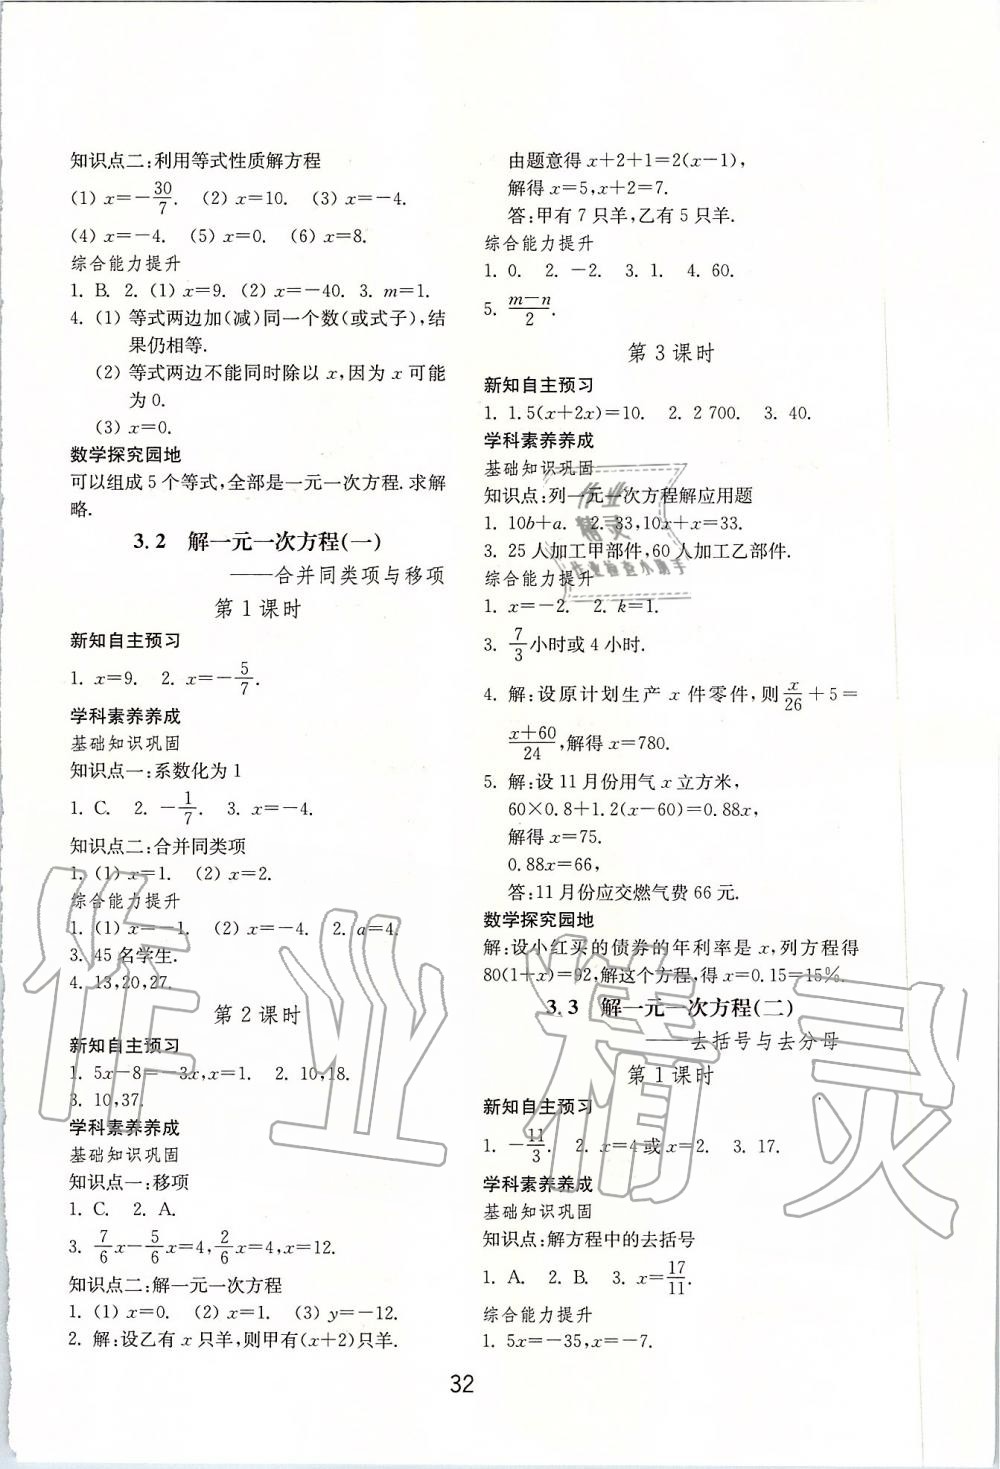 知识点二:利用等式性质解方程
(1) x=-30/7. (2) x=10. (3) x=-4.
(4) x=-4. (5) x=0. (6) x=8.
综合能力提升
1. B. 2. (1) x=9. (2) x=-40. 3. m=1.
4. (1) 等式两边加(减)同一个数(或式子),结
果仍相等.
(2) 等式两边不能同时除以 x,因为 x 可能
为0.
(3) x=0.
数学探究园地
可以组成5个等式,全部是一元一次方程. 求解
略.
3.2 解一元一次方程(一)
——合并同类项与移项
第1课时
新知自主预习
1. x=9. 2. x=-5/7.
学科素养养成
基础知识巩固
知识点一:系数化为1
1. C. 2. -1/7. 3. x=-4.
知识点二:合并同类项
1. (1) x=1. (2) x=2.
综合能力提升
1. (1) x=-1. (2) x=-4. 2. a=4.
3. 45名学生.
4. 13,20,27.
第2课时
新知自主预习
1. 5x-8=-3x,x=1. 2. 10,18.
3. 10,37.
学科素养养成
基础知识巩固
知识点一:移项
1. C. 2. A.
3. 7/6x-5/6x=4,2/6x=4,x=12.
知识点二:解一元一次方程
1. (1) x=0. (2) x=1. (3) y=-12.
2. 解:设乙有 x 只羊,则甲有(x+2)只羊.
由题意得 x+2+1=2(x-1),
解得 x=5,x+2=7.
答:甲有7只羊,乙有5只羊.
综合能力提升
1. 0. 2. -2. 3. 1. 4. 60.
5. m-n/2.
第3课时
新知自主预习
1. 1.5(x+2x)=10. 2. 2 700. 3. 40.
学科素养养成
基础知识巩固
知识点:列一元一次方程解应用题
1. 10b+a. 2. 33,10x+x=33.
3. 25人加工甲部件,60人加工乙部件.
综合能力提升
1. x=-2. 2. k=1.
3. 7/3小时或4小时.
4. 解:设原计划生产 x 件零件,则x/26+5=
x+60/24,解得 x=780.
5. 解:设11月份用气 x 立方米,
60×0.8+1.2(x-60)=0.88x,
解得 x=75.
0.88x=66,
答:11月份应交燃气费66元.
数学探究园地
解:设小红买的债券的年利率是 x,列方程得
80(1+x)=92,解这个方程,得 x=0.15=15%.
3.3 解一元一次方程(二)
——去括号与去分母
第1课时
新知自主预习
1. -11/3. 2. x=4或x=2. 3. 17.
学科素养养成
基础知识巩固
知识点:解方程中的去括号
1. A. 2. B. 3. x=17/11.
综合能力提升
1. 5x=-35,x=-7.
32
作业
精灵
作业检查小助手
作业精灵